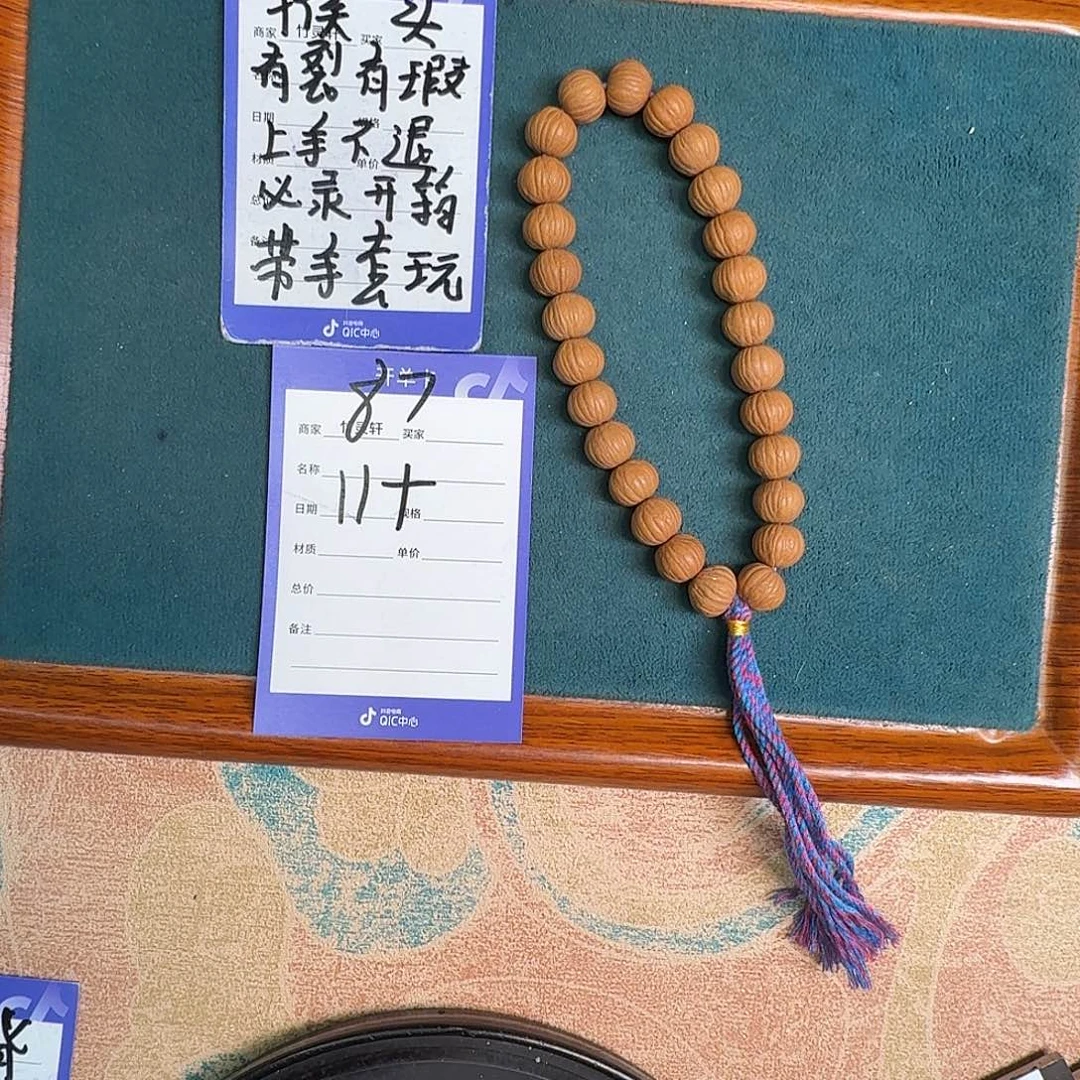 猴头
商家 竹灵轩 买家
有裂有瑕
日期
上手不退
材质 单价
必录开箱
带手套玩
抖音电商
QIC中心
开单
87
商家 竹灵轩 买家
名称
11十
日期 规格
材质 单价
总价
备注
抖音电商
QIC中心